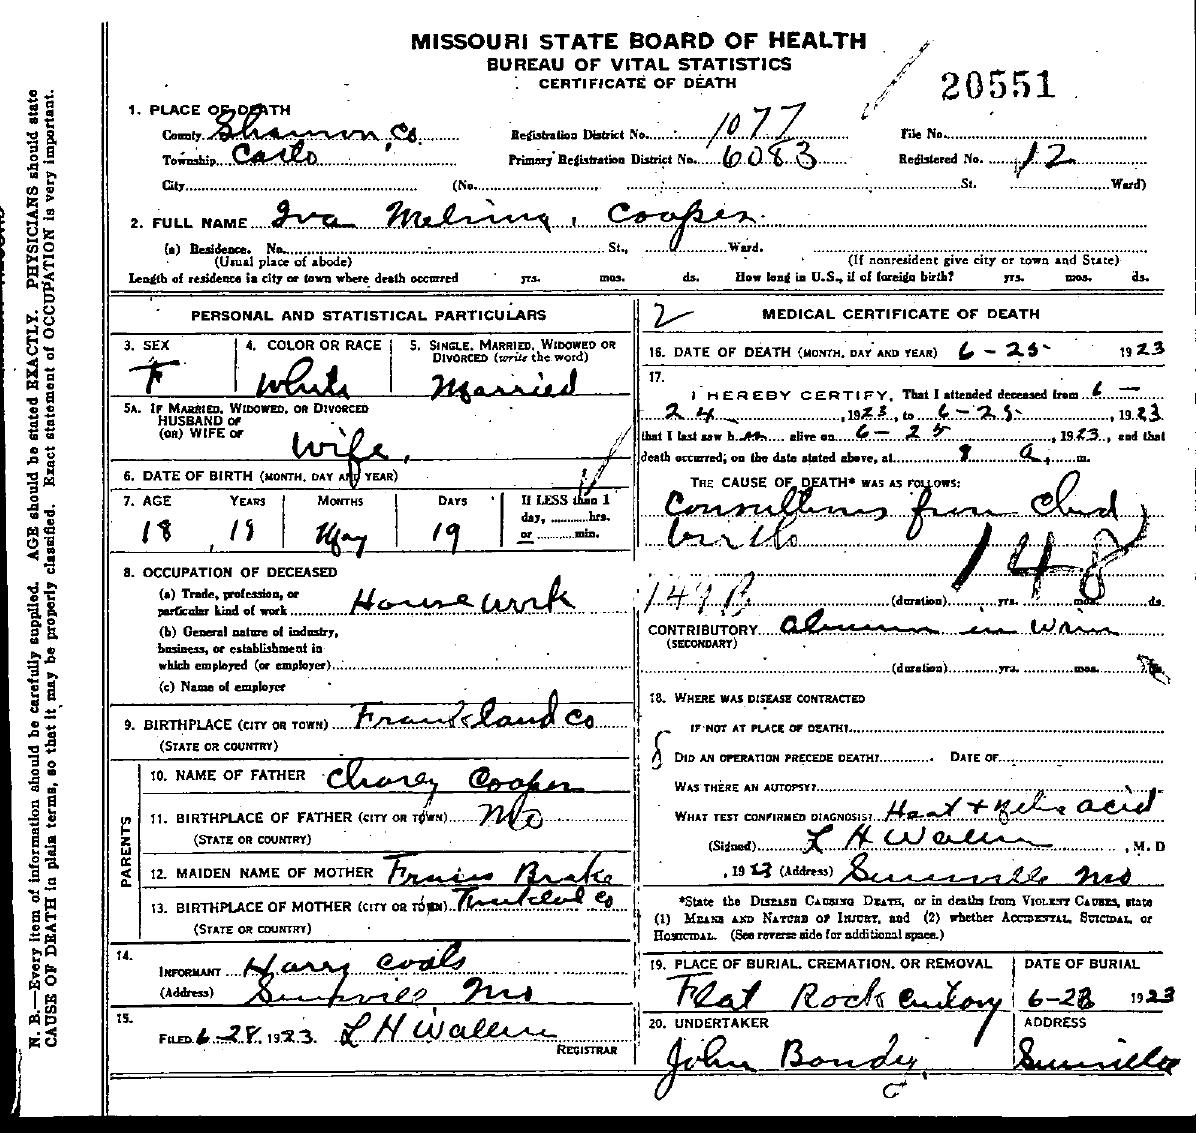 MISSOURI STATE BOARD OF HEALTH
BUREAU OF VITAL STATISTICS
CERTIFICATE OF DEATH
20551
1. PLACE OF DEATH
County Shannon Co. Registration District No. 1077 File No.
Township Primary Registration District No. 6083 Registered No. 12
City (No. St. Ward)
2. FULL NAME Iva Cooper
(a) Residence. No. St., Ward.
(Usual place of abode) (If nonresident give city or town and State)
Length of residence in city or town where death occurred yrs. mos. ds. How long in U.S., if of foreign birth? yrs. mos. ds.
PERSONAL AND STATISTICAL PARTICULARS
3. SEX 4. COLOR OR RACE 5. SINGLE, MARRIED, WIDOWED OR
DIVORCED (write the word)
F White Married
5A. IF MARRIED, WIDOWED, OR DIVORCED
HUSBAND OF
(OR) WIFE OF wife.
6. DATE OF BIRTH (MONTH, DAY AND YEAR)
7. AGE YEARS MONTHS DAYS If LESS than 1
day, hrs.
or min.
18 May 19
8. OCCUPATION OF DECEASED
(a) Trade, profession, or
particular kind of work House work
(b) General nature of industry,
business, or establishment in
which employed (or employer)
(c) Name of employer
9. BIRTHPLACE (CITY OR TOWN) Co
(STATE OR COUNTRY)
PARENTS
10. NAME OF FATHER Charley Cooper
11. BIRTHPLACE OF FATHER (CITY OR TOWN) Mo
(STATE OR COUNTRY)
12. MAIDEN NAME OF MOTHER Brake
13. BIRTHPLACE OF MOTHER (CITY OR TOWN) Co
(STATE OR COUNTRY)
14.
INFORMANT Harry
(Address) Mo
15.
FILED 6-28, 1923. L H
REGISTRAR
2 MEDICAL CERTIFICATE OF DEATH
16. DATE OF DEATH (MONTH, DAY AND YEAR) 6-25 1923
17.
I HEREBY CERTIFY, That I attended deceased from 6-
24, 1923, to 6-25, 1923
that I last saw h alive on 6-25, 1923, and that
death occurred, on the date stated above, at a. m.
THE CAUSE OF DEATH* WAS AS FOLLOWS:
from Child
birth
148
149B (duration) yrs. mos. ds.
CONTRIBUTORY in
(SECONDARY)
(duration) yrs. mos.
18. WHERE WAS DISEASE CONTRACTED
IF NOT AT PLACE OF DEATH?
DID AN OPERATION PRECEDE DEATH? DATE OF
WAS THERE AN AUTOPSY?
WHAT TEST CONFIRMED DIAGNOSIS? Heat + acid
(Signed) L H , M. D
, 1923 (Address) Mo
*State the DISEASE CAUSING DEATH, or in deaths from VIOLENT CAUSES, state
(1) MEANS AND NATURE OF INJURY, and (2) whether ACCIDENTAL, SUICIDAL, or
HOMICIDAL. (See reverse side for additional space.)
19. PLACE OF BURIAL, CREMATION, OR REMOVAL DATE OF BURIAL
Flat Rock 6-28 1923
20. UNDERTAKER ADDRESS
John
N. B.—Every item of information should be carefully supplied. AGE should be stated EXACTLY. PHYSICIANS should state
CAUSE OF DEATH in plain terms, so that it may be properly classified. Exact statement of OCCUPATION is very important.